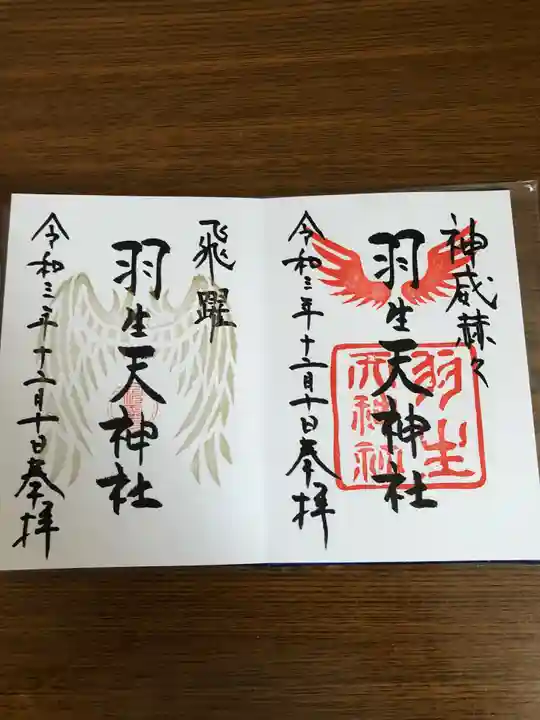 神威赫々
羽生天神社
羽生天神社
令和三年十二月十日奉拝
飛躍
羽生天神社
令和三年十二月十日奉拝